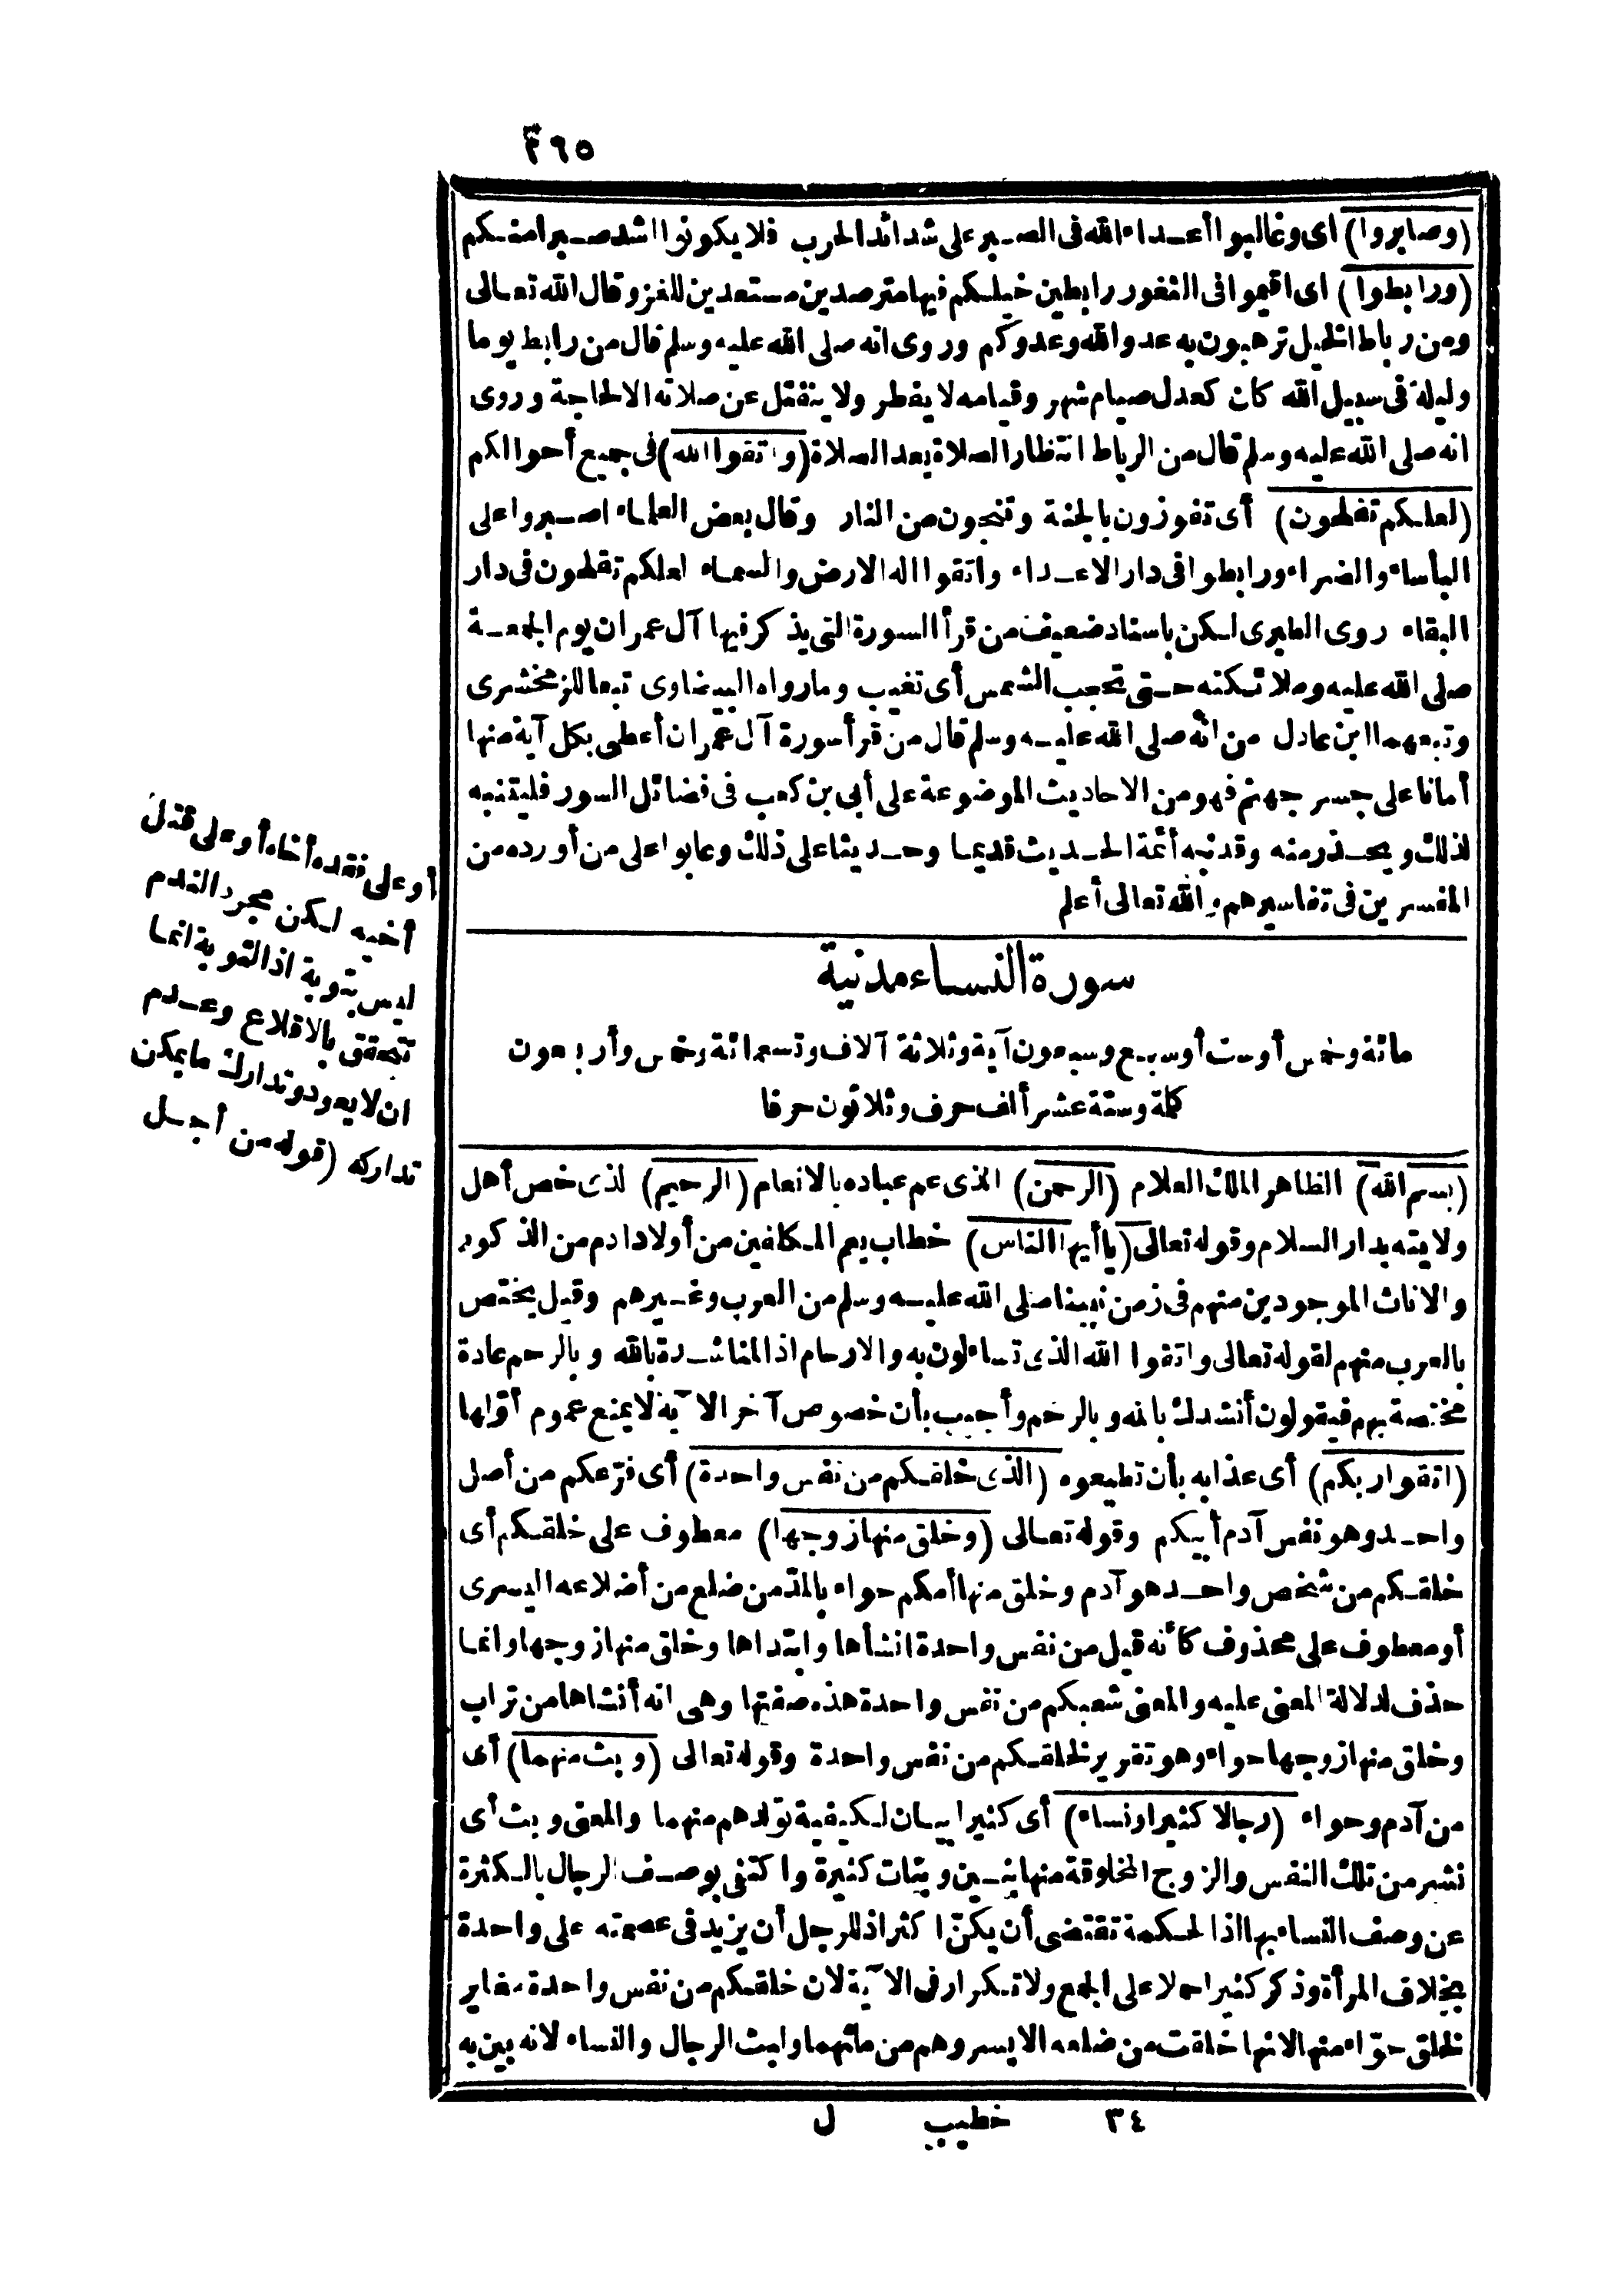 ٢٦٥
(وصابروا) اى وغالبوا أعداء الله فى الصبر على شدائد الحرب فلا يكونوا اشد صبرا منكم
(ورابطوا) اى اقيموا فى الثغور رابطين خيلكم فيها مترصدين مستعدين للغزو قال الله تعالى
ومن رباط الخيل ترهبون به عدو الله وعدوكم وروى انه صلى الله عليه وسلم قال من رابط يوما
وليلة فى سبيل الله كان كعدل صيام شهر وقيامه لا يفطر ولا ينفتل عن صلاته الا لحاجة وروى
انه صلى الله عليه وسلم قال من الرباط انتظار الصلاة بعد الصلاة (واتقوا الله) فى جميع أحوالكم
(لعلكم تفلحون) أى تفوزون بالجنة وتنجون من النار وقال بعض العلماء اصبروا على
البأساء والضراء ورابطوا فى دار الاعداء واتقوا اله الارض والسماء لعلكم تفلحون فى دار
البقاء روى الطبرى لكن باسناد ضعيف من قرأ السورة التى يذكر فيها آل عمران يوم الجمعة
صلى الله عليه وملائكته حتى تحجب الشمس أى تغيب وما رواه البيضاوى تبعا للزمخشرى
وتبعهما ابن عادل من انه صلى الله عليه وسلم قال من قرأ سورة آل عمران أعطى بكل آية منها
أمانا على جسر جهنم فهو من الاحاديث الموضوعة على أبى بن كعب فى فضائل السور فليتنبه
لذلك ويحذر منه وقد نبه أئمة الحديث قديما وحديثا على ذلك وعابوا على من أورده من
المفسرين فى تفاسيرهم والله تعالى أعلم
سورة النساء مدنية
مائة وخمس أو ست أو سبع وسبعون آية وثلاثة آلاف وتسعمائة وخمس وأربعون
كلمة وستة عشر ألف حرف وثلاثون حرفا
(بسم الله) الظاهر الملك العلام (الرحمن) الذى عم عباده بالانعام (الرحيم) لذى خص أهل
ولايته بدار السلام وقوله تعالى (يا أيها الناس) خطاب يعم المكلفين من أولاد ادم من الذكور
والاناث الموجودين منهم فى زمن نبينا صلى الله عليه وسلم من العرب وغيرهم وقيل يختص
بالعرب منهم لقوله تعالى واتقوا الله الذى تساءلون به والارحام اذ المناشدة بالله وبالرحم عادة
مختصة بهم فيقولون أنشدك بالله وبالرحم وأجيب بأن خصوص آخر الآية لا يمنع عموم أولها
(اتقوا ربكم) أى عذابه بأن تطيعوه (الذى خلقكم من نفس واحدة) أى فرّعكم من أصل
واحد وهو نفس آدم أبيكم وقوله تعالى (وخلق منها زوجها) معطوف على خلقكم أى
خلقكم من شخص واحد هو آدم وخلق منها أمكم حواء بالمدّ من ضلع من أضلاعه اليسرى
أو معطوف على محذوف كأنه قيل من نفس واحدة انشأها وابتداها وخلق منها زوجها وانما
حذف لدلالة المعنى عليه والمعنى شعبكم من نفس واحدة هذه صفتها وهى انه أنشاها من تراب
وخلق منها زوجها حواء وهو تقرير لخلقكم من نفس واحدة وقوله تعالى (وبث منهما) أى
من آدم وحواء (رجالا كثيرا ونساء) أى كثيرا بيان لكيفية تولدهم منهما والمعنى وبث أى
نشر من تلك النفس والزوج المخلوقة منها بنين وبنات كثيرة واكتفى بوصف الرجال بالكثرة
عن وصف النساء بها اذ الحكمة تقتضى أن يكنّ اكثر اذ للرجل أن يزيد فى عصمته على واحدة
بخلاف المرأة وذكر كثيرا حملا على الجمع ولا تكرار فى الآية لان خلقكم من نفس واحدة مغاير
لخلق حوّاء منها لانها خلقت من ضلعه الايسر وهم من مائهما ولبث الرجال والنساء لانه بين به
أو على فقده أخاه أو على قتل
أخيه لكن مجرد الندم
ليس بتوبة اذ التوبة انما
تتحقق بالاقلاع وعدم
ان لا يعود وتدارك ما يمكن
تداركه (قوله من أجل
٣٤ خطيب ل